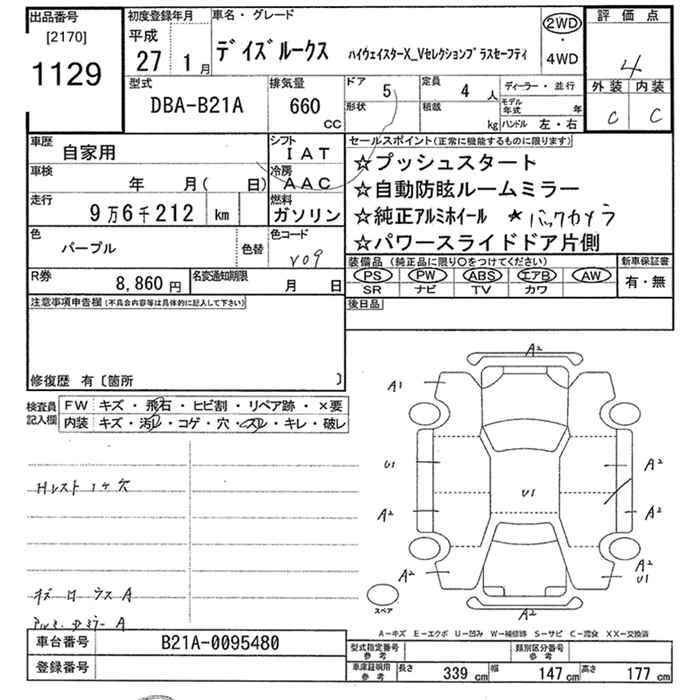 出品番号
[2170]
1129
初度登録年月
平成
27年 1月
車名・グレード
デイズルークス ハイウェイスターX_Vセレクションプラスセーフティ
2WD
・
4WD
評価点
4
外装 内装
C C
型式
DBA-B21A
排気量
660 CC
ドア 5
形状
定員 4 人
積載 kg
ディーラー・並行
モデル年式 年
ハンドル 左・右
車歴
自家用
シフト
IAT
車検
年 月( 日)
冷房
AAC
走行
9万6千212 km
燃料
ガソリン
色
パープル
色替
色コード
V09
R券
8,860円
名変通知期限
月 日
セールスポイント(正常に機能するものに限ります)
☆プッシュスタート
☆自動防眩ルームミラー
☆純正アルミホイール ★バックカメラ
☆パワースライドドア片側
装備品 (純正品に限り○をつけてください)
PS PW ABS エアB AW
SR ナビ TV カワ
新車保証書
有・無
後日品
注意事項申告欄(不具合内容等は具体的に記入して下さい)
修復歴 有〔箇所 〕
検査員記入欄
FW キズ・飛石・ヒビ割・リペア跡・×要
内装 キズ・汚レ・コゲ・穴・スレ・キレ・破レ
Hレスト イヤ穴
A
A
A2
A1
U1
A2
A2
U1
A2
A2
A2
U1
A2
スペア
A-キズ E-エクボ U-凹み W-補修跡 S-サビ C-腐食 XX-交換済
車台番号
B21A-0095480
登録番号
型式指定番号
参考
類別区分番号
参考
車庫証明用
参考
長さ 339 cm 幅 147 cm 高さ 177 cm